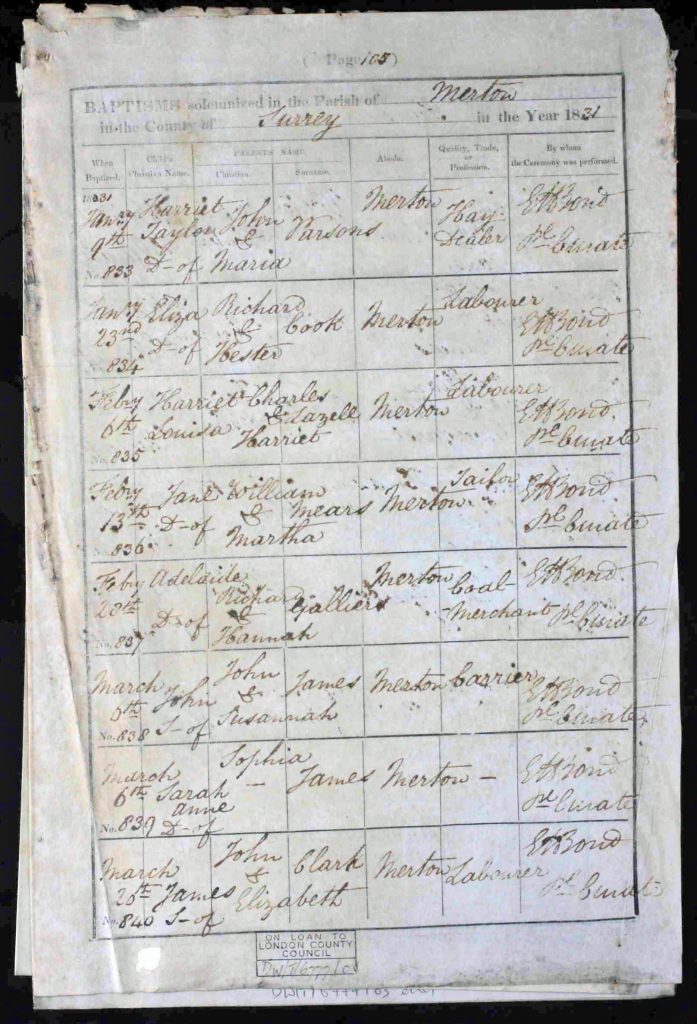 ( Page 105 )
BAPTISMS solemnized in the Parish of Merton
in the County of Surrey in the Year 1831
When Baptized. Child's Christian Name. PARENTS NAME Christian. Surname. Abode. Quality, Trade, or Profession. By whom the Ceremony was performed.
1831
Janry Harriet John Parsons Merton Hay EHBond
9th Taylor & Dealer Pl Curate
No. 833 D- of Maria
Janry Eliza Richard Cook Merton Labourer EHBond
23rd D- of & Pl Curate
No. 834 Hester
Feby Harriet Charles Lazell Merton Labourer EHBond.
6th Louisa & Pl Curate
No. 835 Harriet
Feby Jane William Mears Merton Tailor EHBond
13th D- of & Pl Curate
No. 836 Martha
Feby Adelaide Richard Galliers Merton Coal EHBond.
20th D- of & Merchant Pl Curate
No. 837 Hannah
March John John James Merton Carrier EHBond
6th S- of & Pl Curate
No. 838 Susannah
March Sarah Sophia James Merton - EHBond
6th anne - Pl Curate
No. 839 D- of
March James John Clark Merton Labourer EHBond
20th S- of & Pl Curate
No. 840 Elizabeth
ON LOAN TO
LONDON COUNTY
COUNCIL